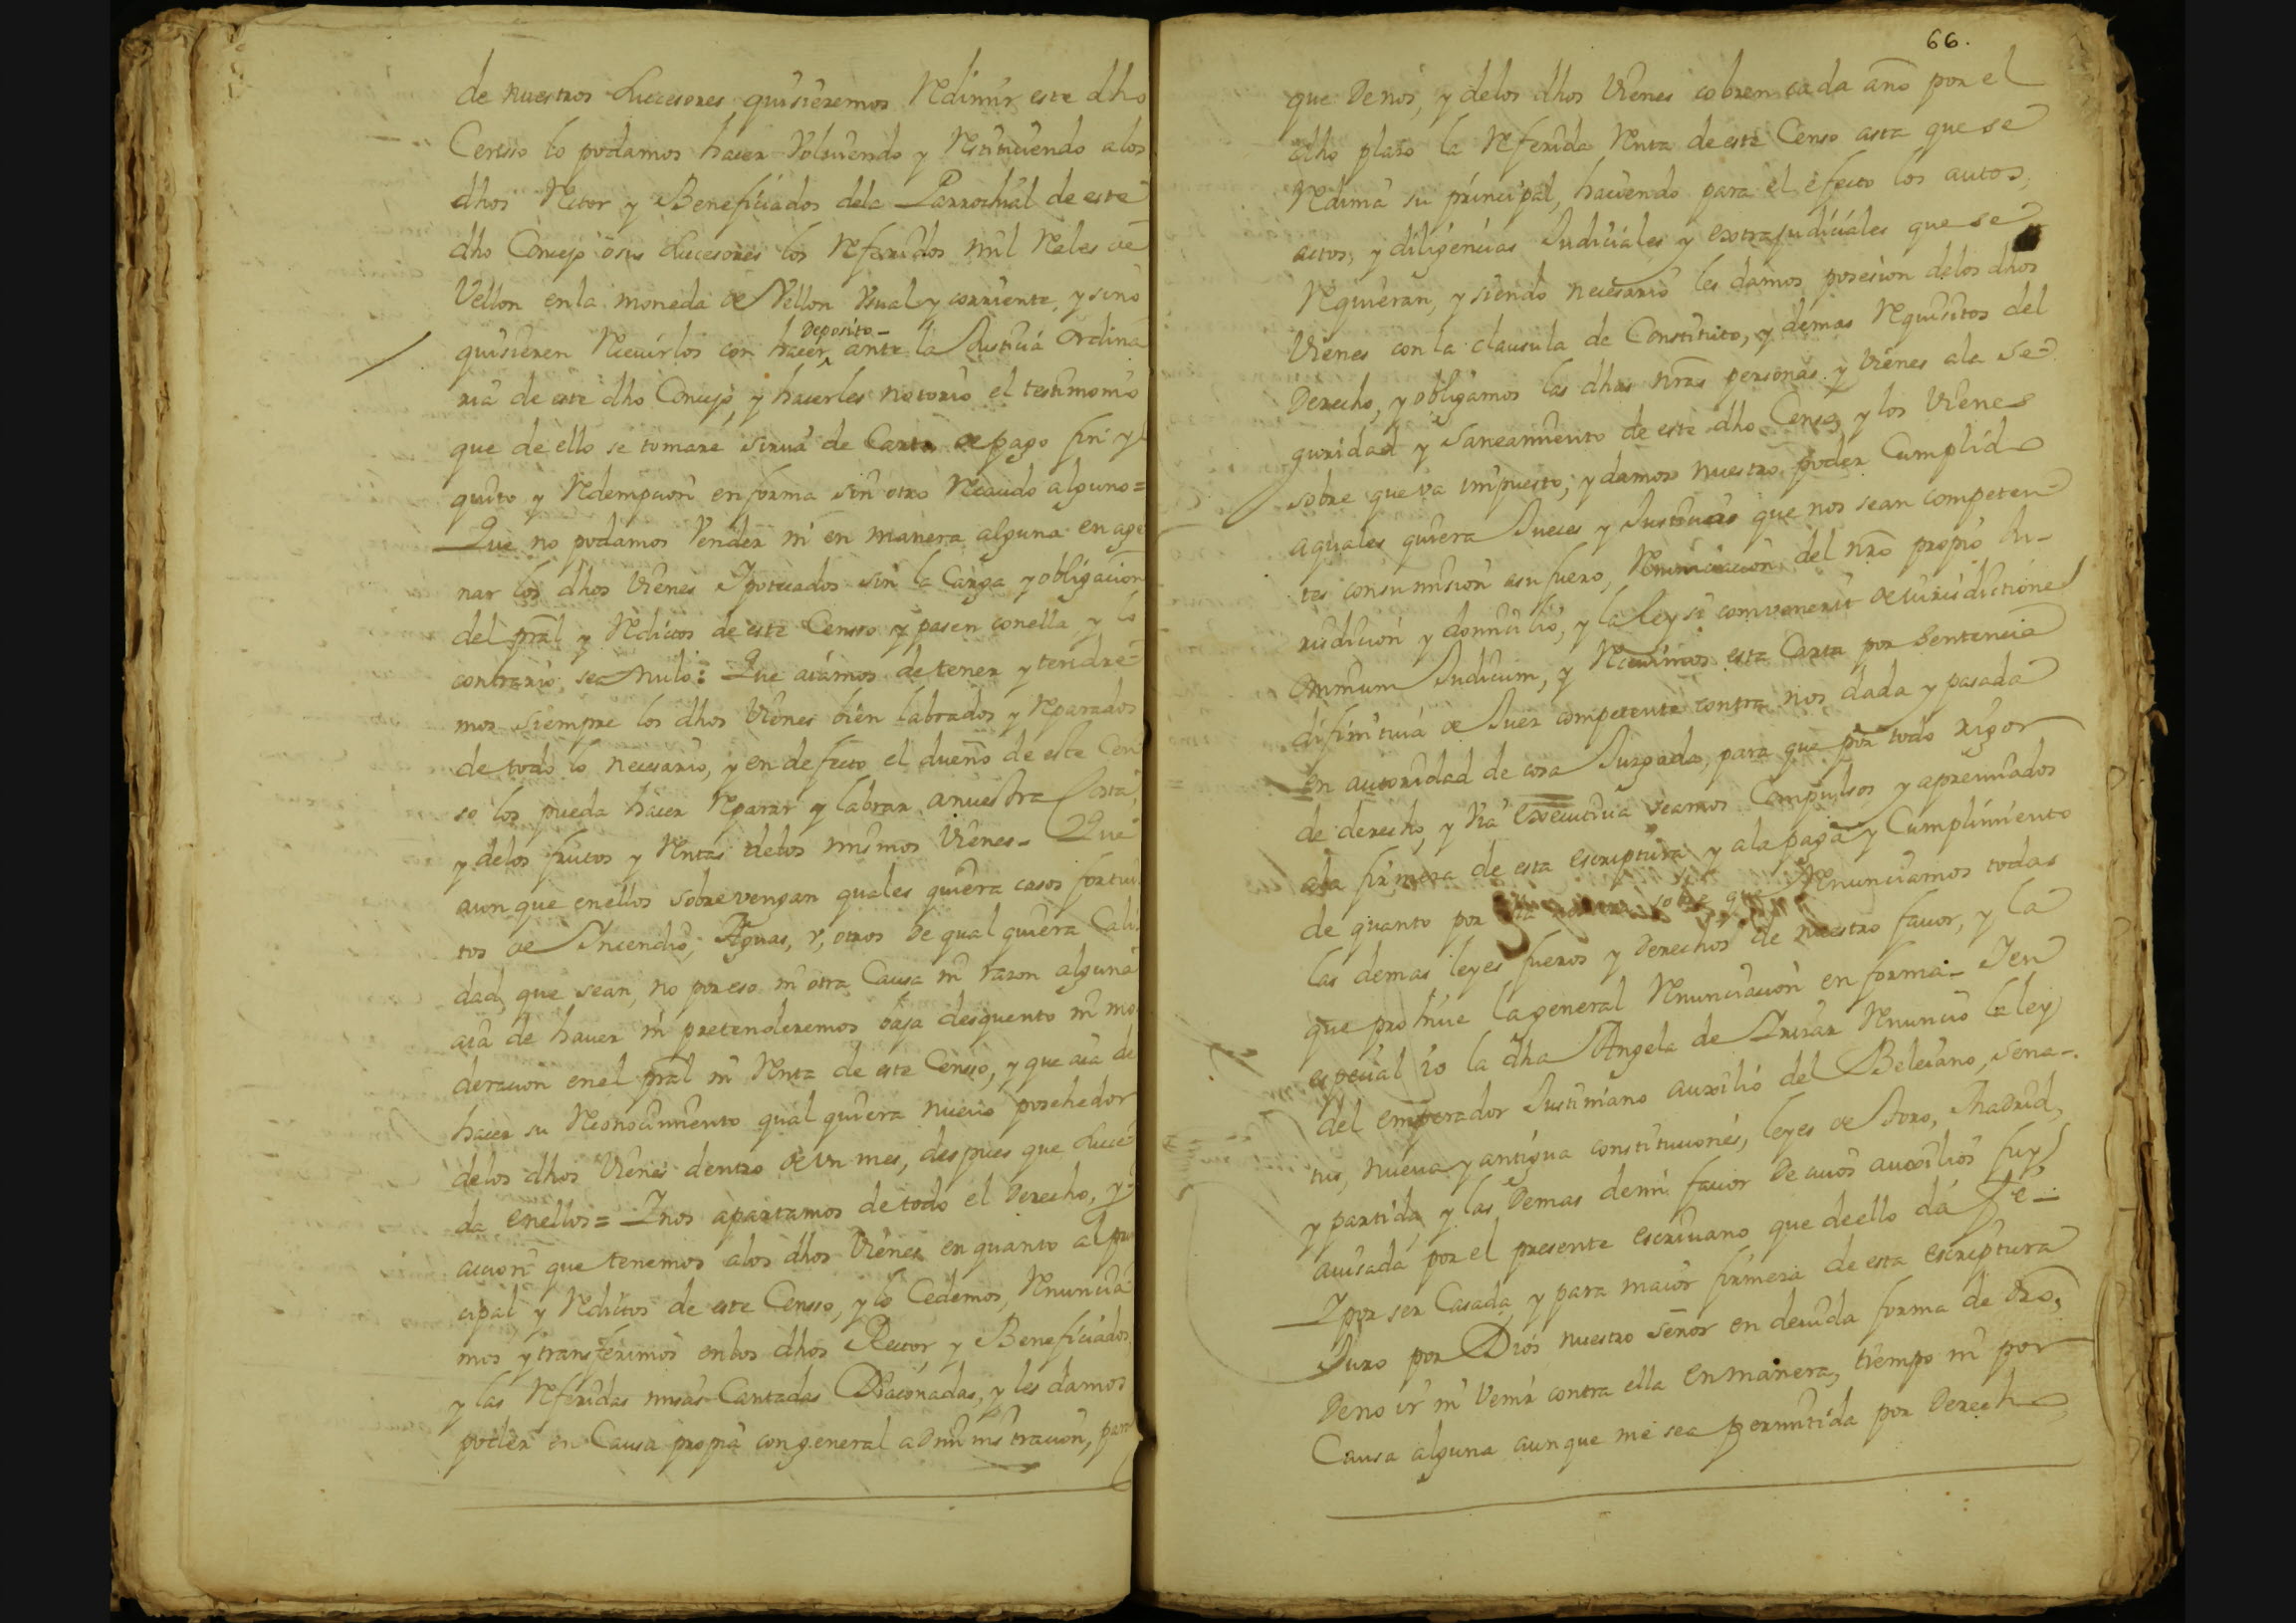 de nuestros Succesores quisieremos Redimir este dho
Censso lo podamos hacer Volviendo y Restituiendo a los
dhos Retor y Beneficiados dela Parrochial de este
dho Concejo o sus Succesores los Referidos mil Reales de
Vellon en la moneda de Vellon Usual y corriente, y sino
quisieren Recivirlos con hacer Deposito ante la Justicia Ordina
ria de este dho Concejo, y hacerles notorio el testimonio
que de ello se tomare sirva de Carta de pago fin y
quito y Redempcion en forma sin otro Recaudo alguno =
Que no podamos Vender ni en manera alguna en age
nar los dhos Vienes Ipotecados sin la Carga y obligacion
del pral y Reditos de este Censso y pasen con ella y lo
contrario sea Nulo: Que aiamos de tener y tendre-
mos siempre los dhos Vienes bien labrados y Reparados
de todo lo necesario, y en defecto el dueño de este Cen
so los pueda hacer Reparar y labrar a nuestra Costa,
y delos frutos y Rentas delos mismos Vienes - Que
aunque en ellos sobrevengan quales quiera casos fortui
tos de Incendio, Aguas, r, otros De qual quiera Cali
dad, que sean, no por eso ni otra Causa ni razon alguna
aia de haver ni pretenderemos baja desquento ni mo
deracion en el pral ni Renta de este Censso, y que aia de
hacer su Reconocimiento qual quiera nuevo posehedor
delos dhos Vienes dentro de un mes, despues que Succe-
da en ellos = Y nos apartamos de todo el Derecho, y
accion que tenemos a los dhos Vienes en quanto al prin
cipal y Reditos de este Censso, y lo Cedemos, Renuncia
mos y transferimos en los dhos Rector y Beneficiados
y las Referidas misas Cantadas Diaconadas, y les damos
poder en Causa propia con general administracion, para
66.
que De nos, y delos dhos Vienes cobren cada año por el
dho plazo la Referida Renta de este Censo asta que se
Redima su principal, haciendo para el efecto los autos,
actos, y diligencias Judiciales y extrajudiciales que se
Requieran, y siendo necesario les damos posesion delos dhos
Vienes con la clausula de Constituto, y demas Requisitos del
Derecho, y obligamos las dhas nras personas y Vienes ala se-
guridad y Saneamiento de este dho Censo, y los Vienes
sobre que va impuesto; y damos nuestro poder Cumplido
a quales quiera Jueces y Justicias que nos sean competen-
tes con sumision a su fuero, Renunciacion del nro propio Ju-
risdicion y domicilio, y la ley si convenerit de iurisdictione
Omnium Judicum, y Recivimos esta Carta por Sentencia
difinitiva de Juez competente contra nos dada y pasada
en autoridad de cosa Juzgada, para que por todo rigor
de derecho, y via executiva seamos Compulsos y apremiados
ala firmeza de esta escriptura y ala paga y Cumplimiento
de quanto por sobre que Renunciamos todas
las demas leyes fueros y Derechos de nuestro favor, y la
que prohive la general Renunciacion en forma - Y en
especial io la dha Angela de Renuncio la ley
del emperador Justiniano auxilio del Beleiano, sena-
tus, nueva y antigua constituciones, leyes de Toro, Madrid,
y partida, y las Demas de mi favor De cuios auxilios fuy
avisada por el presente escrivano que de ello dá feé -
Y por ser Casada y para maior firmeza de esta escriptura
Juro por Dios nuestro señor en devida forma de dro,
De no ir ni Venir contra ella en manera, tiempo ni por
Causa alguna aunque me sea permitida por Derecho